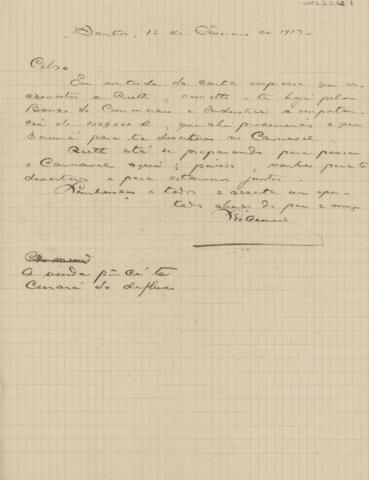 Santos, 12 de Fevereiro de 1917.
Celso
Em virtude da carta expressa que es-
creveste a Ruth, remetto-te hoje pelo
Banco do Commercio e Industria a importan-
cia de 100$000 R, que ahi procurarás e que
servirá para te divertires no Carnaval
Ruth está se preparando para passar
o Carnaval aqui; pois, venha para te
divertires e para estarmos juntos.
Lembranças a todos e acceita um aper-
tado abraço do pae e amigo
A vinda p.ª cá te
curará do defluxo